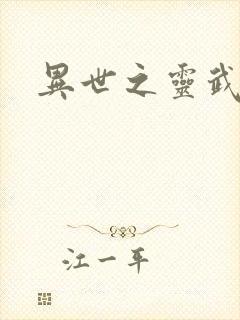 異世之靈武
江一平